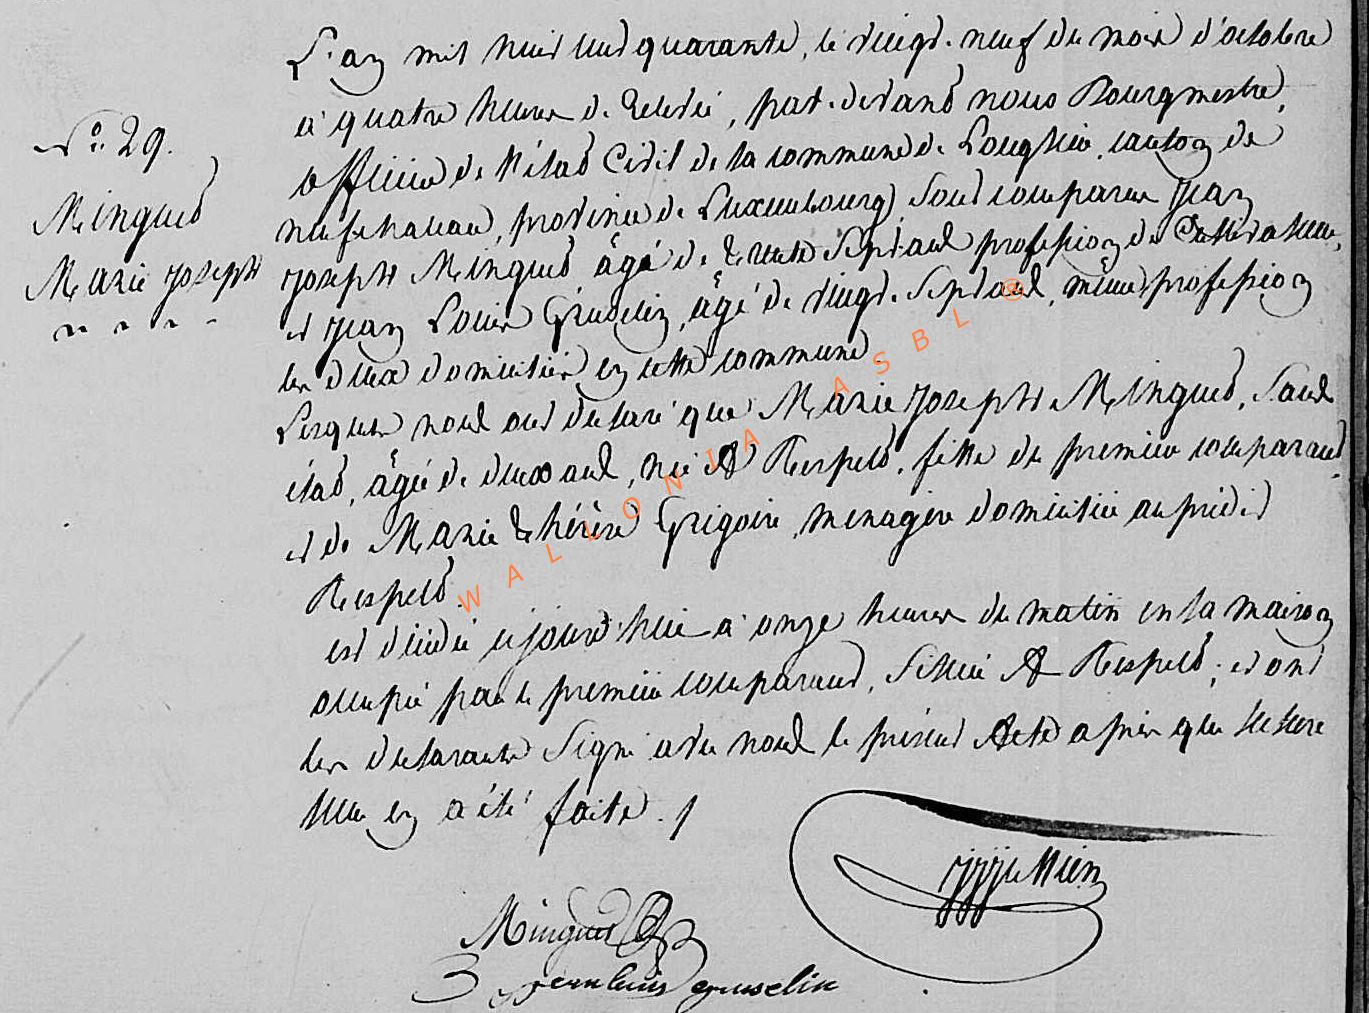 N.° 29.
Mingued
Marie Joseph
L'an mil huit cent quarante, le vingt-neuf du mois d'octobre
à quatre heures de relevée, par-devant nous Bourgmestre,
officier de l'état civil de la commune de Longlier, canton de
neufchateau, province de Luxembourg, sont comparus Jean
Joseph Mingued âgé de trente sept ans profession de Cultivateur,
et Jean Louis Gruselin, âgé de vingt-sept ans, même profession
les deux domiciliés en cette commune.
Lesquels nous ont déclaré que Marie Joseph Mingued, sans
état, âgée de deux ans, née à Respelt, fille du premier comparant
et de Marie thérèse Grigoire, menagère domiciliée au prédit
Respelt.
est décédée ce jourd'hui à onze heures du matin en la maison
occupée par le premier comparant, située à Respelt; et ont
les déclarants signé avec nous le présent Acte après que lecture
leur en a été faite.
JJJullien
Mingued
Jean louis gruselin
WALLONIA ASBL ®